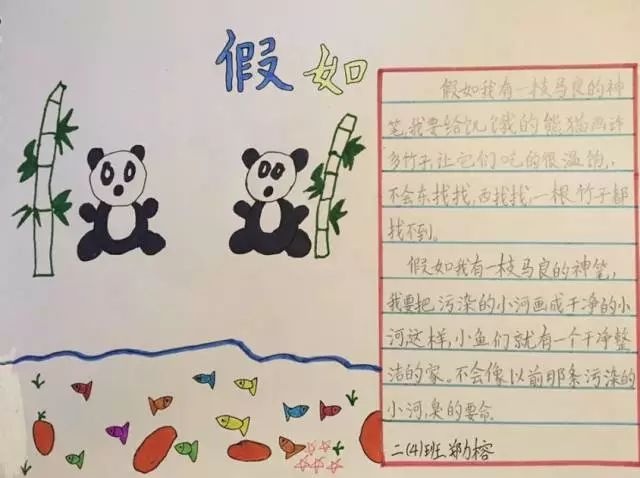 假如
假如我有一枝马良的神
笔,我要给饥饿的熊猫画许
多竹子,让它们吃的很温饱,
不会东找找,西找找,一根竹子都
找不到。
假如我有一枝马良的神笔,
我要把污染的小河画成干净的小
河这样,小鱼们就有一个干净整
洁的家。不会像以前那条污染的
小河,臭的要命。
二(4)班